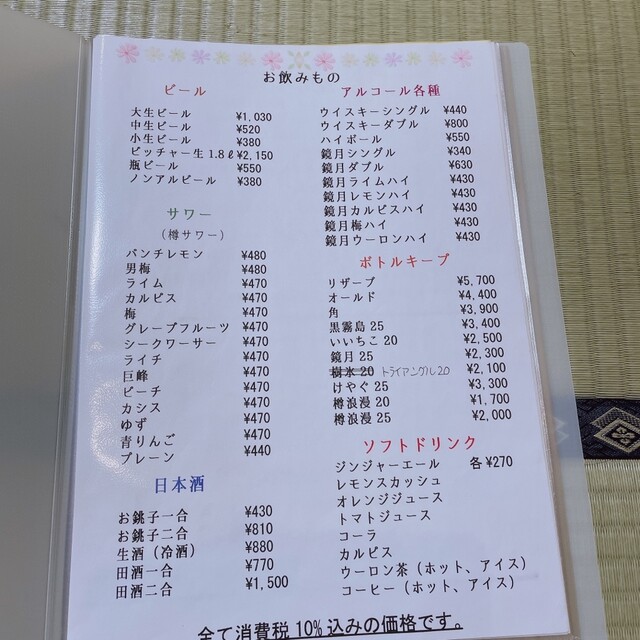 お飲みもの
ビール
大生ビール ¥1,030
中生ビール ¥520
小生ビール ¥380
ピッチャー生 1.8ℓ ¥2,150
瓶ビール ¥550
ノンアルビール ¥380
サワー
（樽サワー）
パンチレモン ¥480
男梅 ¥480
ライム ¥470
カルピス ¥470
梅 ¥470
グレープフルーツ ¥470
シークワーサー ¥470
ライチ ¥470
巨峰 ¥470
ピーチ ¥470
カシス ¥470
ゆず ¥470
青りんご ¥470
プレーン ¥440
日本酒
お銚子一合 ¥430
お銚子二合 ¥810
生酒（冷酒） ¥880
田酒一合 ¥770
田酒二合 ¥1,500
アルコール各種
ウイスキーシングル ¥440
ウイスキーダブル ¥800
ハイボール ¥550
鏡月シングル ¥340
鏡月ダブル ¥630
鏡月ライムハイ ¥430
鏡月レモンハイ ¥430
鏡月カルピスハイ ¥430
鏡月梅ハイ ¥430
鏡月ウーロンハイ ¥430
ボトルキープ
リザーブ ¥5,700
オールド ¥4,400
角 ¥3,900
黒霧島 25 ¥3,400
いいちこ 20 ¥2,500
鏡月 25 ¥2,300
樹氷 20 トライアングル20 ¥2,100
けやぐ 25 ¥3,300
樽浪漫 20 ¥1,700
樽浪漫 25 ¥2,000
ソフトドリンク
ジンジャーエール 各 ¥270
レモンスカッシュ
オレンジジュース
トマトジュース
コーラ
カルピス
ウーロン茶（ホット、アイス）
コーヒー（ホット、アイス）
全て消費税 10% 込みの価格です。